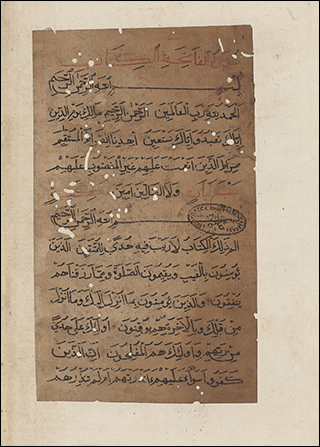 الفاتحة الكتاب
بسم الله الرحمن الرحيم
الحمد لله رب العالمين الرحمن الرحيم مالك يوم الدين
اياك نعبد و اياك نستعين اهدنا الصراط المستقيم
صراط الذين انعمت عليهم غير المغضوب عليهم
ولا الضالين امين
بسم الله الرحمن الرحيم
الم ذلك الكتاب لا ريب فيه هدى للمتقين الذين
يؤمنون بالغيب ويقيمون الصلوة ومما رزقناهم
ينفقون والذين يؤمنون بما انزل اليك وما انزل
من قبلك وبالاخرة هم يوقنون اولئك على هدى
من ربهم واولئك هم المفلحون ان الذين
كفروا سواء عليهم ءانذرتهم ام لم تنذرهم